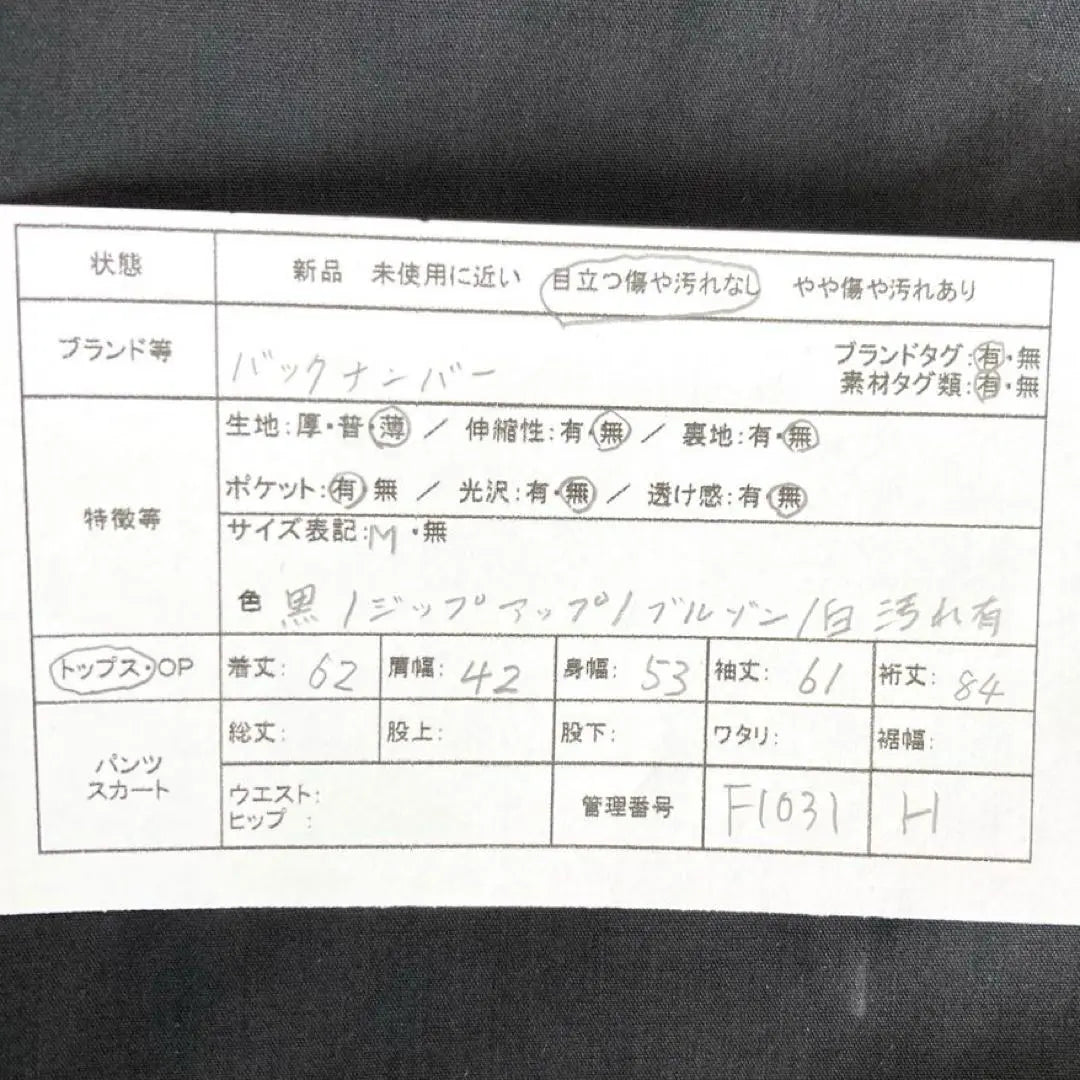 状態 新品 未使用に近い 目立つ傷や汚れなし やや傷や汚れあり
ブランド等 バックナンバー ブランドタグ:有・無
素材タグ類:有・無
特徴等 生地:厚・普・薄 / 伸縮性:有・無 / 裏地:有・無
ポケット:有・無 / 光沢:有・無 / 透け感:有・無
サイズ表記:M・無
色 黒/ジップアップ/ブルゾン/白汚れ有
トップス・OP 着丈:62 肩幅:42 身幅:53 袖丈:61 裄丈:84
パンツ スカート 総丈: 股上: 股下: ワタリ: 裾幅:
ウエスト:
ヒップ : 管理番号 F1031 H